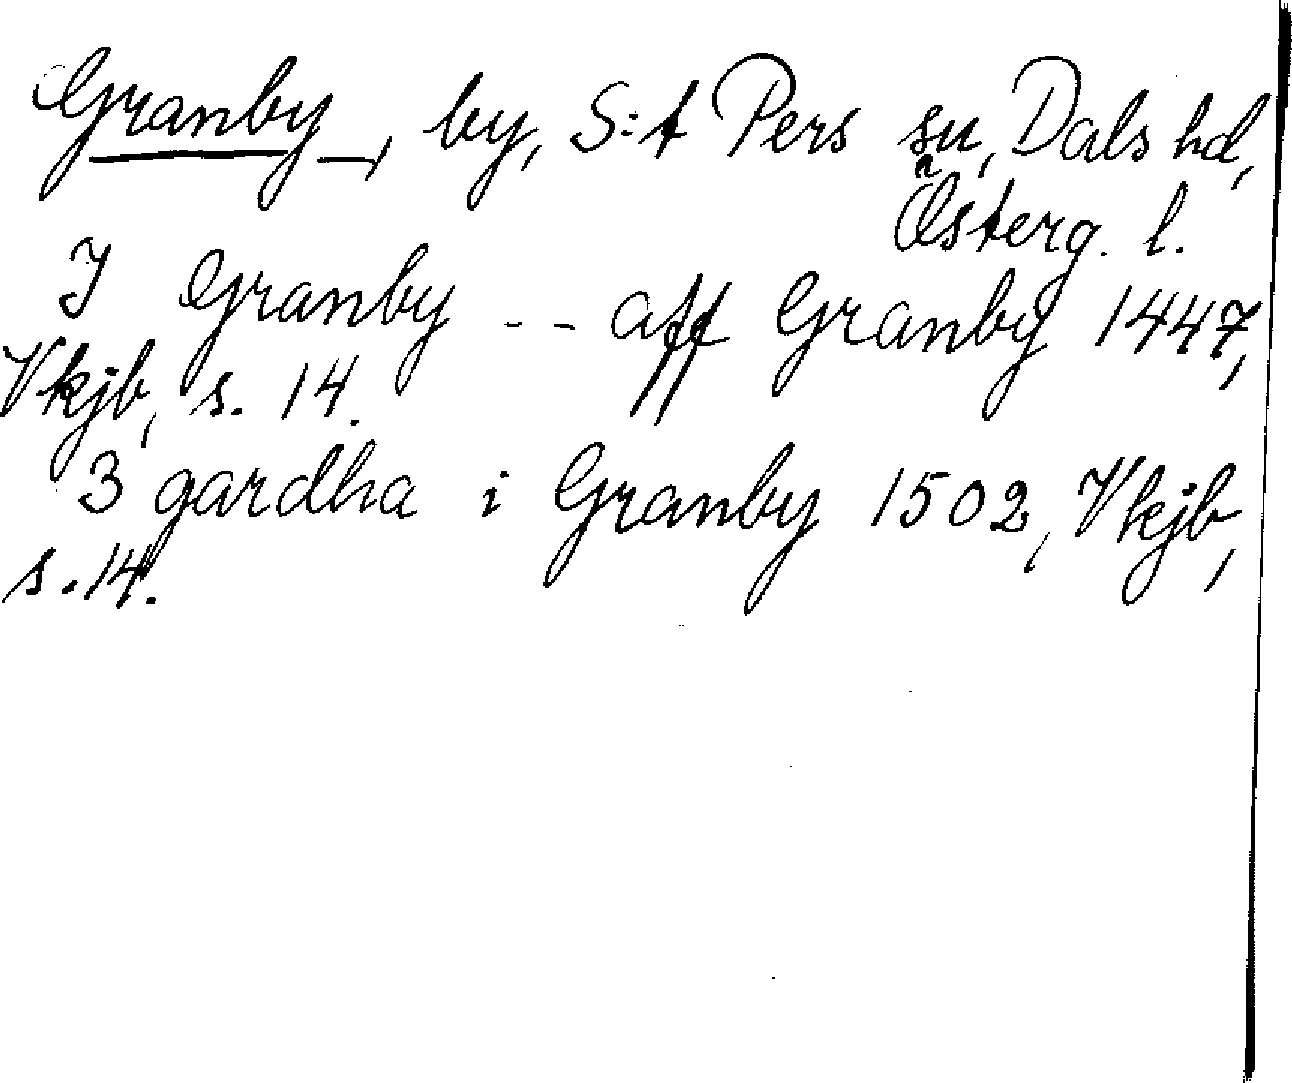 Granby, by, S:t Pers sn, Dals hd,
Österg. l.
I Granby - - aff Granby 1447,
Vkjb, s. 14.
3 gardha i Granby 1502, Vkjb,
s. 14.